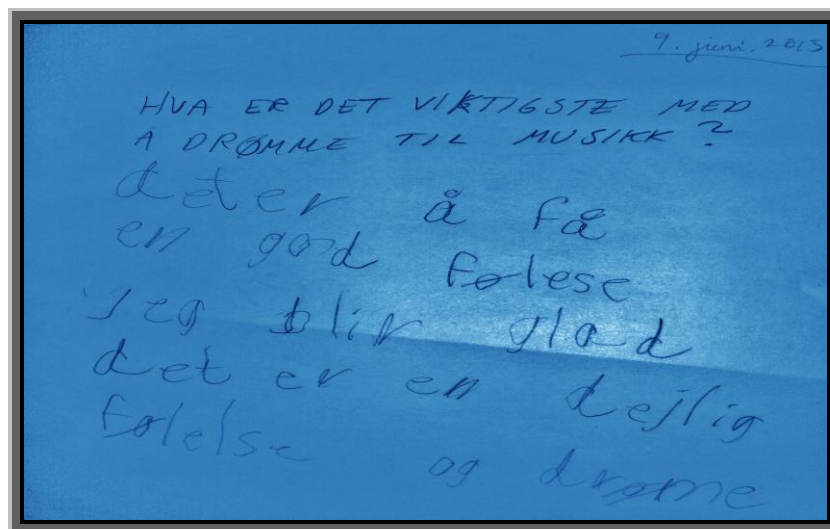 9. juni. 2015
HVA ER DET VIKTIGSTE MED
Å DRØMME TIL MUSIKK?
det er å få
en god følese
Jeg blir glad
det er en dejlig
følelse og drøme